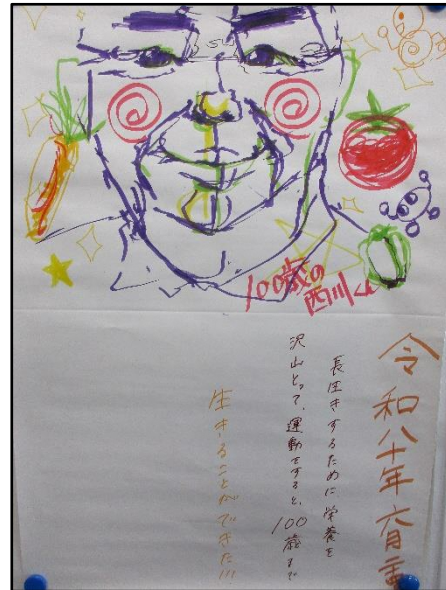 100歳の
西川くん
令和八十年 六月号
長生きするために、栄養を
沢山とって、運動をすると、100歳まで
生きることができた!!!